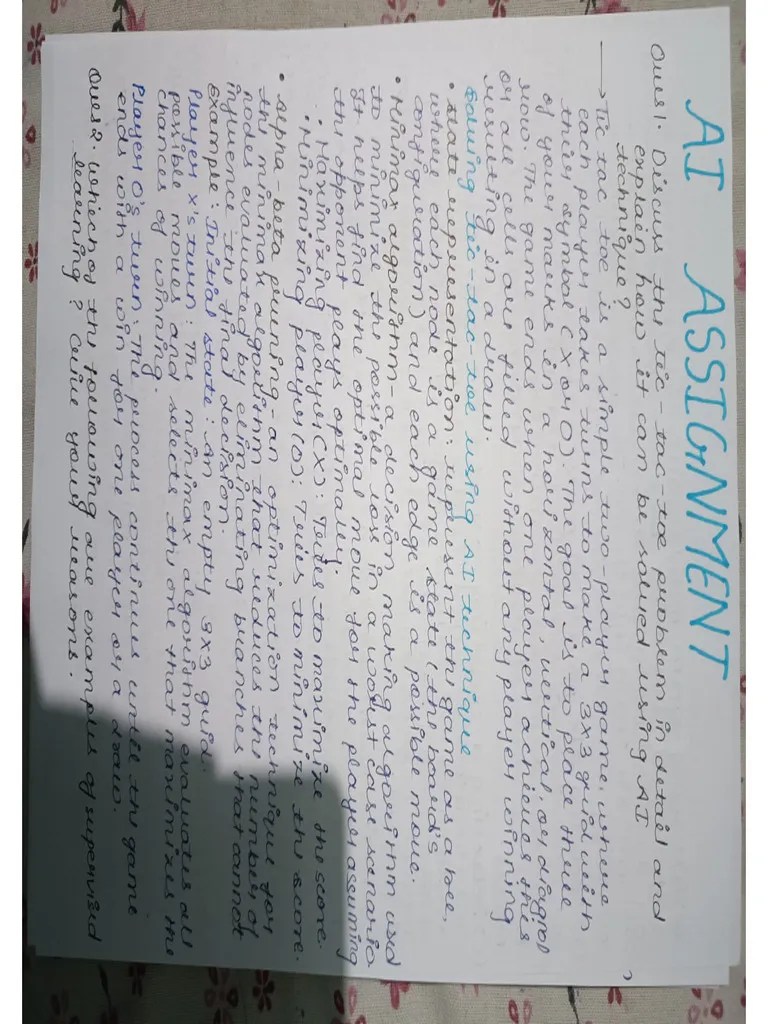 AI ASSIGNMENT
Ques1. Discuss the tic-tac-toe problem in detail and
explain how it can be solved using AI
technique?
→ Tic tac toe is a simple two-player game, where
each player takes turns to make a 3x3 grid with
their symbol (X or O). The goal is to place three
of your marks in a horizontal, vertical, or diagonal
row. The game ends when one player achieves this
or all cells are filled without any player winning
resulting in a draw.
Solving tic-tac-toe using AI technique
• State representation: represent the game as a tree,
where each node is a game state (the board's
configuration) and each edge is a possible move.
• Minimax algorithm - a decision making algorithm used
to minimize the possible loss in a worst case scenario
It helps find the optimal move for the player assuming
the opponent plays optimally.
• Maximizing player (X): Tries to maximize the score.
• Minimizing player (O): Tries to minimize the score.
• Alpha-beta pruning - an optimization technique for
the minimax algorithm that reduces the number of
nodes evaluated by eliminating branches that cannot
influence the final decision.
Example: Initial state: An empty 3x3 grid.
Player X's turn: The minimax algorithm evaluates all
possible moves and selects the one that maximizes the
chances of winning.
Player O's turn: The process continues until the game
ends with a win for one player or a draw.
Ques2. Which of the following are examples of supervised
learning? Give your reasons.